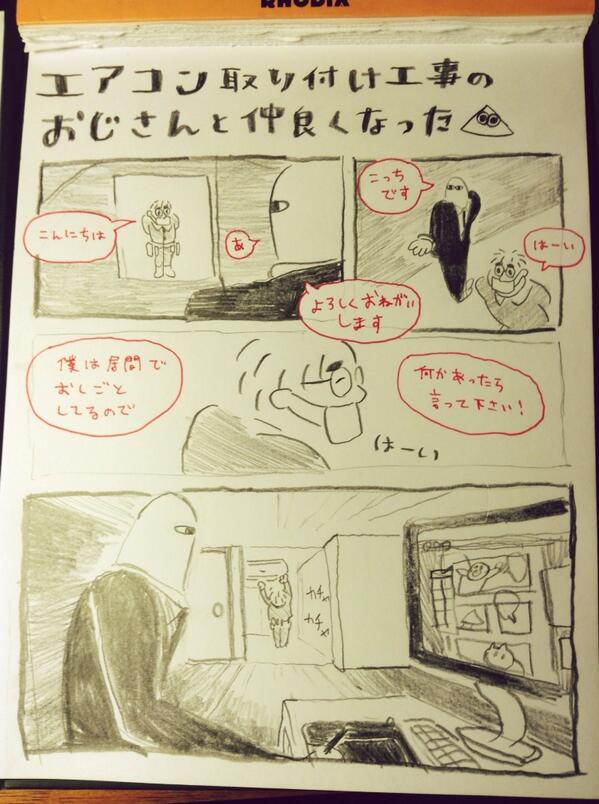 RHODIA
エアコン取り付け工事の
おじさんと仲良くなった
こんにちは
あ
よろしくおねがい
します
こっち
です
はーい
僕は居間で
おしごと
してるので
何かあったら
言って下さい!
はーい
ガチャ
ガチャ